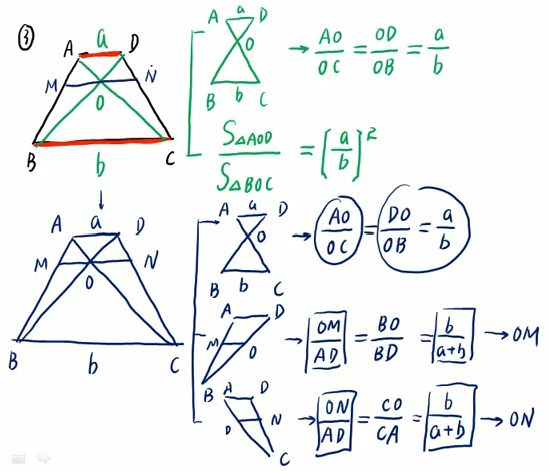 ③
A a D
M N
O
B b C
A a D
O
B b C
→ AO/OC = OD/OB = a/b
S△AOD/S△BOC = [a/b]²
A a D
M N
O
B b C
A a D
O
B b C
→ AO/OC = DO/OB = a/b
A D
M O
B
→ OM/AD = BO/BD = b/a+b → OM
A D
O N
C
→ ON/AD = CO/CA = b/a+b → ON